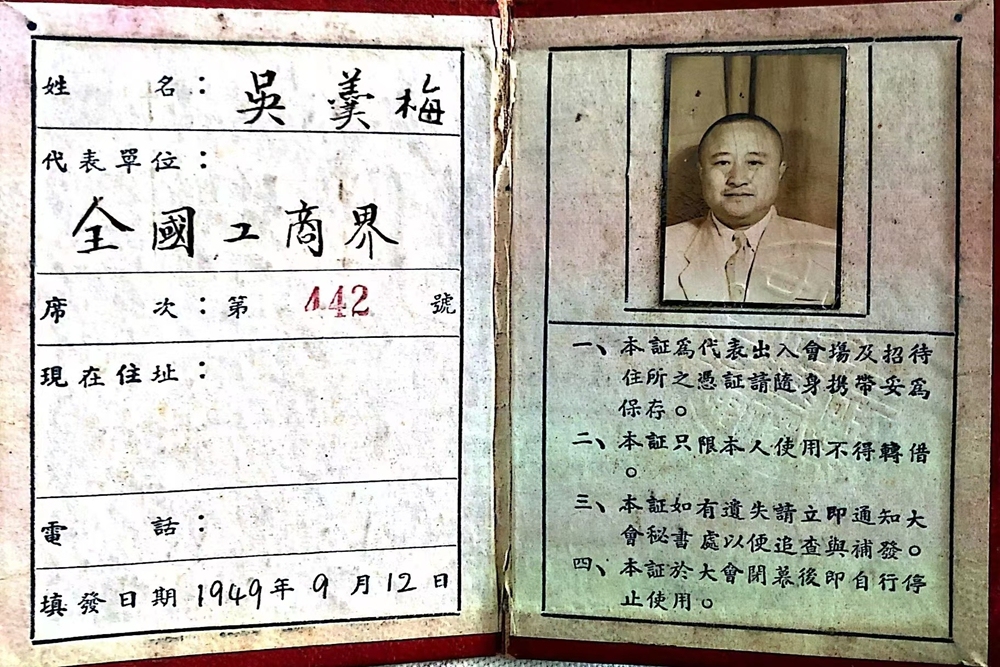 姓 名：吳羹梅
代表單位：
全國工商界
席 次：第 442 號
現在住址：
電 話：
填發日期 1949年 9 月 12 日
一、本証爲代表出入會場及招待
住所之憑証請隨身携帶妥爲
保存。
二、本証只限本人使用不得轉借
。
三、本証如有遺失請立即通知大
會秘書處以便追查與補發。
四、本証於大會閉幕後即自行停
止使用。